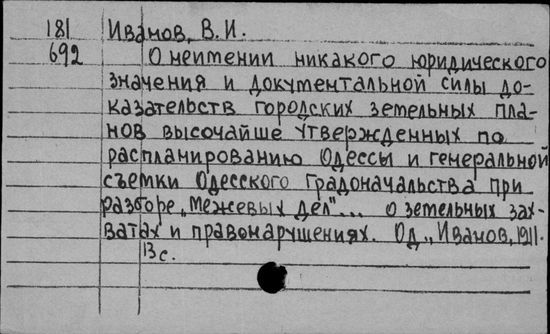 181 Иванов, В. И.
692 О неимении никакого юридического
значения и документальной силы до-
казательств городских земельных пла-
нов высочайше утвержденных по
распланированию Одессы и генеральной
съемки Одесского Градоначальства при
разборе „Межевых дел"... о земельных зах-
ватах и правонарушениях. Од., Иванов, 1911.
13 с.